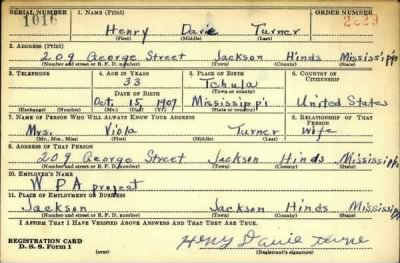 SERIAL NUMBER 1. NAME (Print) ORDER NUMBER
1016 Henry Davie Turner 2229
(First) (Middle) (Last)
2. ADDRESS (Print)
209 George Street Jackson Hinds Mississippi
(Number and street or R. F. D. number) (Town) (County) (State)
3. TELEPHONE 4. AGE IN YEARS 5. PLACE OF BIRTH 6. COUNTRY OF CITIZENSHIP
33 Tchula
DATE OF BIRTH (Town or county)
Oct. 15, 1907 Mississippi United States
(Exchange) (Number) (Mo.) (Day) (Yr.) (State or country)
7. NAME OF PERSON WHO WILL ALWAYS KNOW YOUR ADDRESS 8. RELATIONSHIP OF THAT PERSON
Mrs. Viola Turner wife
(Mr., Mrs., Miss) (First) (Middle) (Last)
9. ADDRESS OF THAT PERSON
209 George Street Jackson Hinds Mississippi
(Number and street or R. F. D. number) (Town) (County) (State)
10. EMPLOYER'S NAME
WPA project
11. PLACE OF EMPLOYMENT OR BUSINESS
Jackson Jackson Hinds Mississippi
(Number and street or R. F. D. number) (Town) (County) (State)
I AFFIRM THAT I HAVE VERIFIED ABOVE ANSWERS AND THAT THEY ARE TRUE.
REGISTRATION CARD
D. S. S. Form 1 Henry Davie
(over) (Registrant's signature)